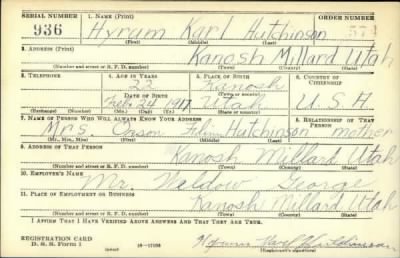 SERIAL NUMBER 1. NAME (Print) ORDER NUMBER
936 Hyrum Karl Hutchinson 571
(First) (Middle) (Last)
2. ADDRESS (Print)
Kanosh Millard Utah
(Number and street or R. F. D. number) (Town) (County) (State)
3. TELEPHONE 4. AGE IN YEARS 5. PLACE OF BIRTH 6. COUNTRY OF CITIZENSHIP
23 Kanosh
DATE OF BIRTH (Town or county)
Feb. 24 1917 Utah U.S.A
(Exchange) (Number) (Mo.) (Day) (Yr.) (State or country)
7. NAME OF PERSON WHO WILL ALWAYS KNOW YOUR ADDRESS 8. RELATIONSHIP OF THAT PERSON
Mrs. Orson Hutchinson mother
(Mr., Mrs., Miss) (First) (Middle) (Last)
9. ADDRESS OF THAT PERSON
Kanosh Millard Utah
(Number and street or R. F. D. number) (Town) (County) (State)
10. EMPLOYER'S NAME
Mr. Weldow George
11. PLACE OF EMPLOYMENT OR BUSINESS
Kanosh Millard Utah
(Number and street or R. F. D. number) (Town) (County) (State)
I AFFIRM THAT I HAVE VERIFIED ABOVE ANSWERS AND THAT THEY ARE TRUE.
REGISTRATION CARD
D. S. S. FORM 1 16-17105 Hyrum Karl Hutchinson
(Registrant's signature)